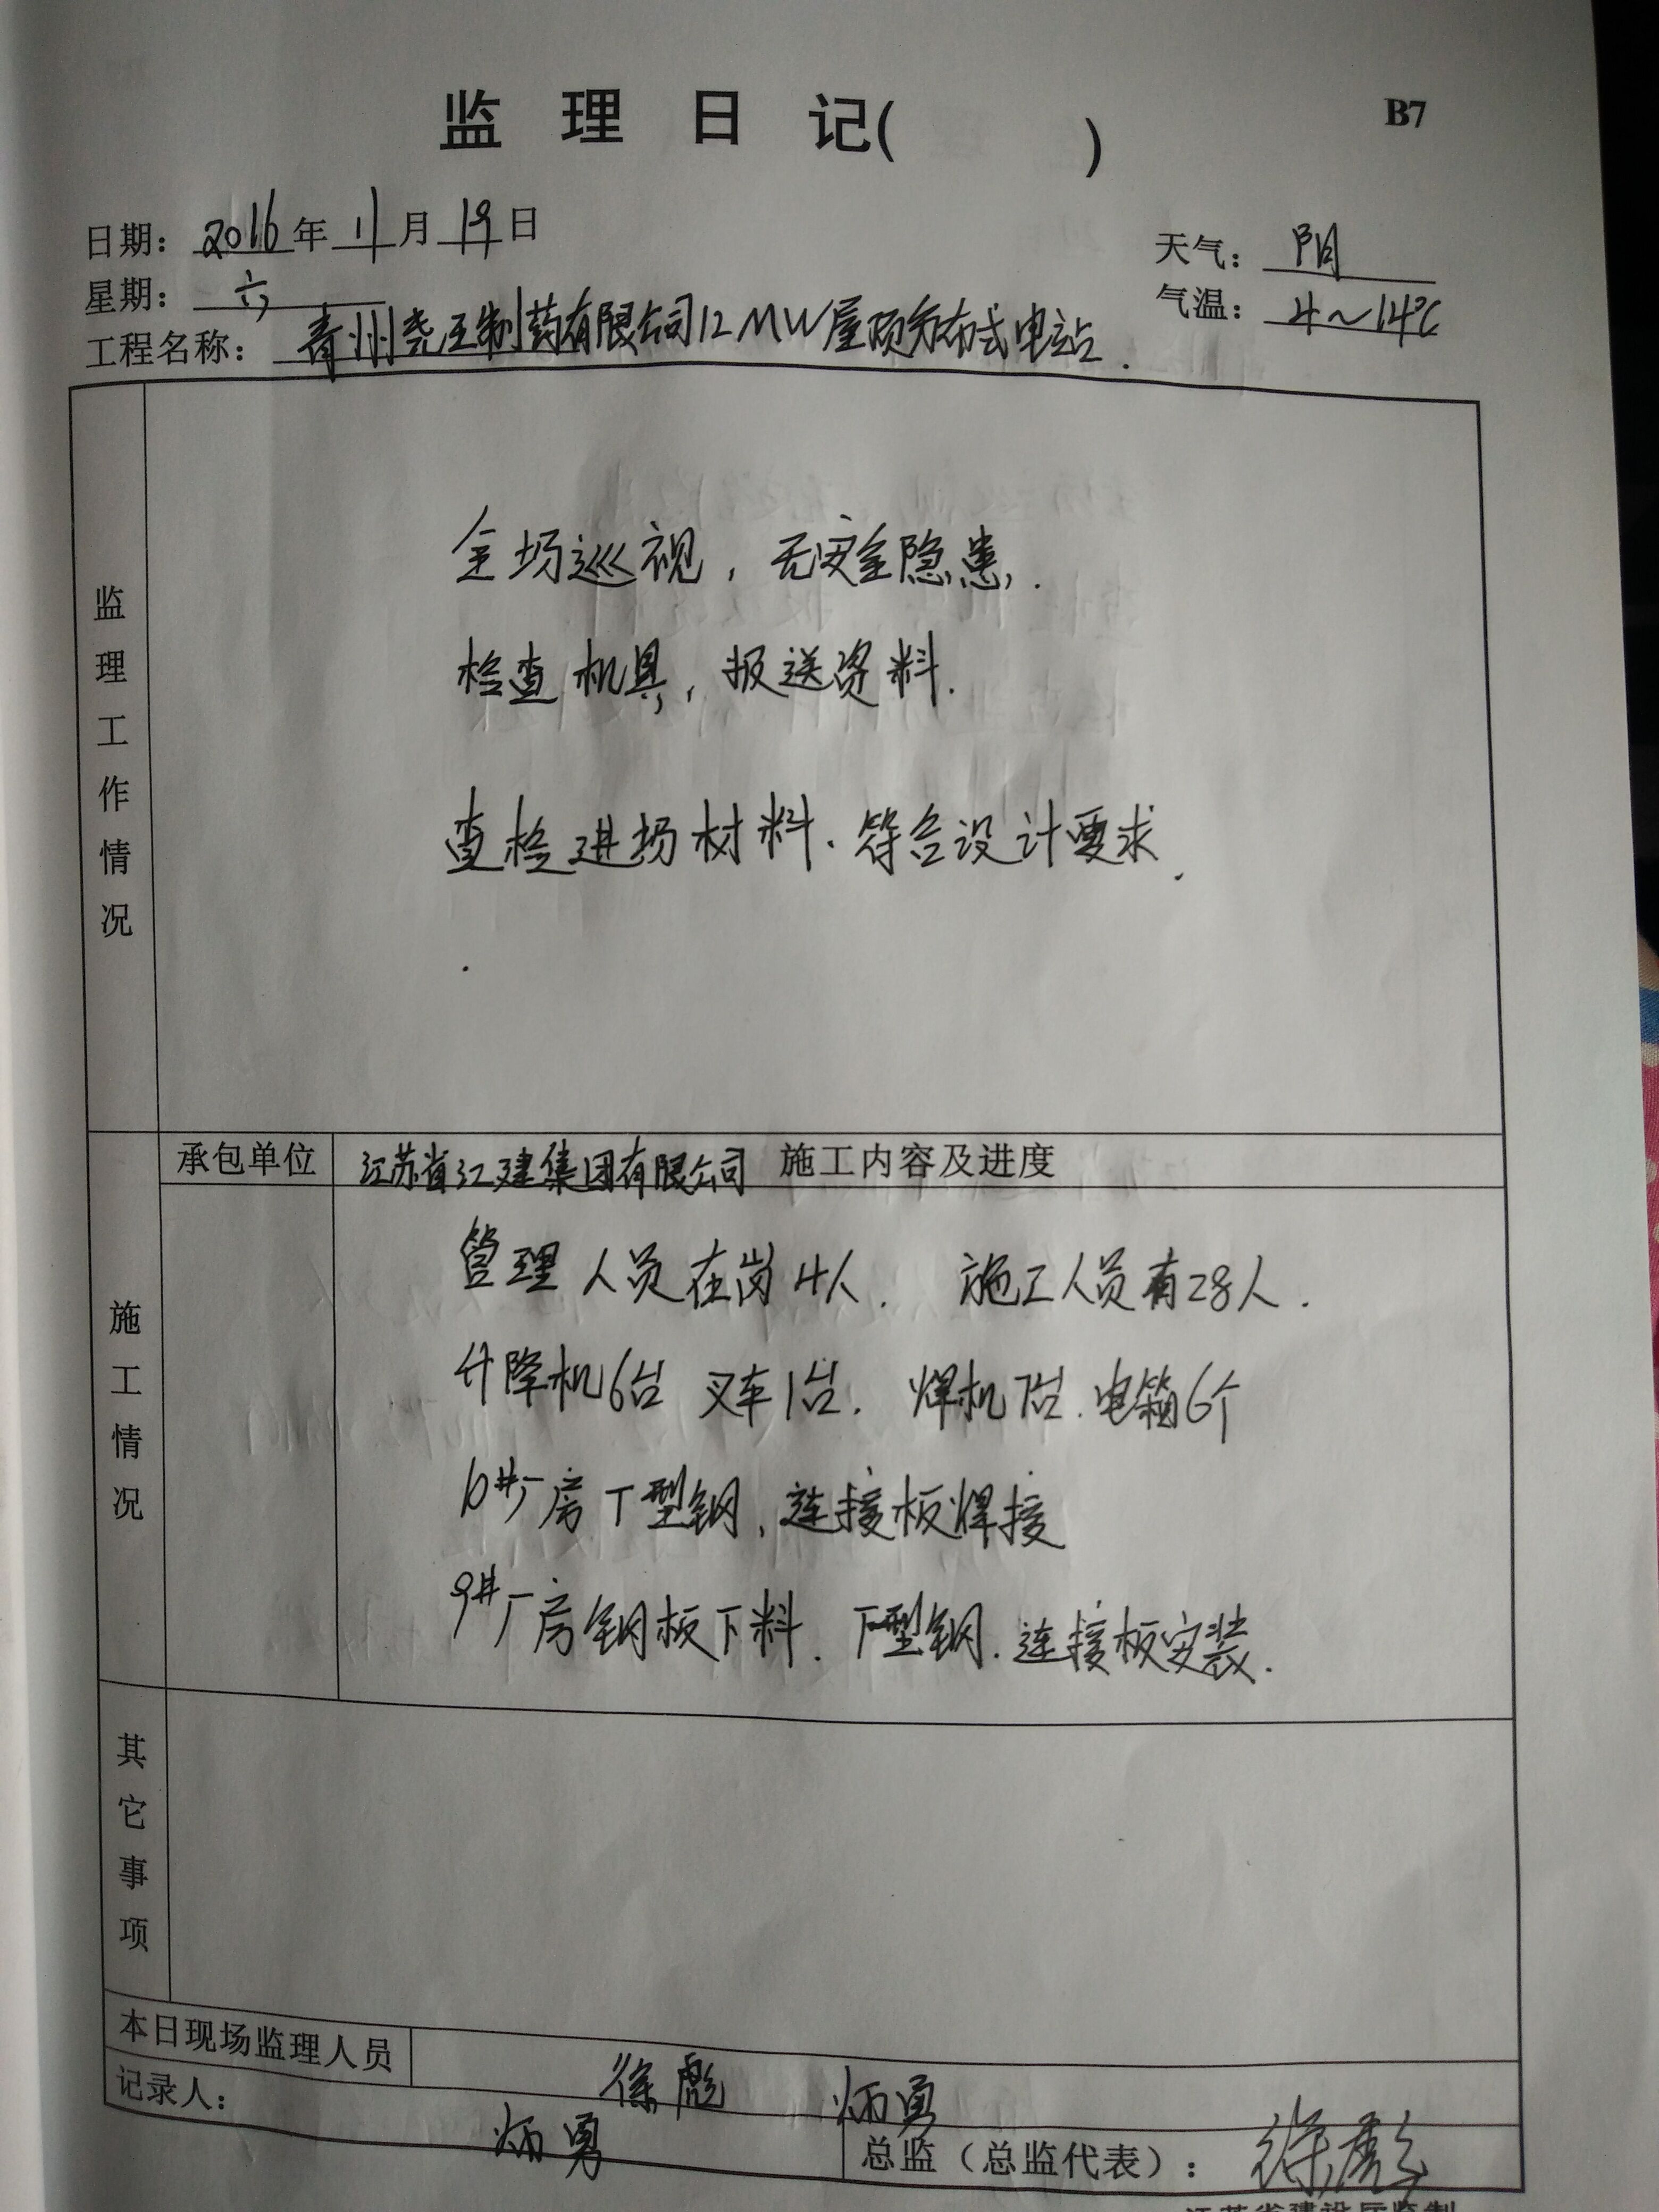 监理日记( )
B7
日期：2016年11月19日
天气：阴
星期：六
气温：4~14℃
工程名称：青州尧王制药有限公司12MW屋顶分布式电站.
监理工作情况
全场巡视，无安全隐患.
检查机具，报送资料.
查检进场材料.符合设计要求.
施工情况
承包单位 江苏省江建集团有限公司 施工内容及进度
管理人员在岗4人. 施工人员有28人.
升降机6台 叉车1台. 焊机7台.电箱6个
6#厂房T型钢,连接板焊接
9#厂房钢板下料.T型钢.连接板安装.
其它事项
本日现场监理人员 徐彪 炳勇
记录人： 炳勇
总监（总监代表）： 徐彪